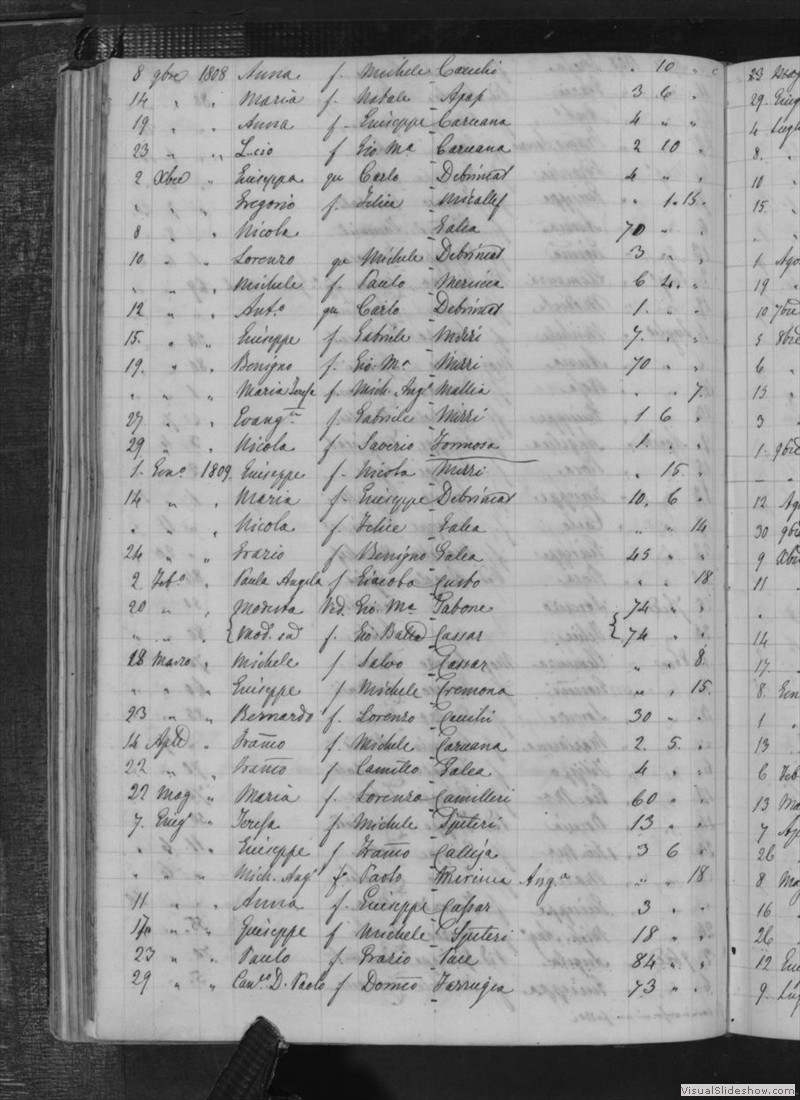 8 9bre 1808 Anna f. Michele Camilli . 10 "
14 " " Maria f. Natale Apap 3 6 .
19 " " Anna f. Giuseppe Caruana 4 " "
23 " " Lucio f Gio Ma Caruana 2 10 .
2 Xbre " Giuseppa qu Carlo Debrincat 4 " .
" " Gregorio f. Felice Micallef " 1. 15.
8 " " Nicola Galea 70 " .
10 " " Lorenzo qu Michele Debrincat 3 " .
" " Michele f. Paulo Mericca 6 4. .
12 " " Anto qu Carlo Debrincat 1. " .
15. " " Giuseppe f. Gabriele Mizzi 7. . .
19. " " Benigno f. Gio. Ma Mizzi 70 " .
" " Maria Teresa f. Mich. Ang. Mallia . . 7.
27 " " Evang.ta f. Gabriele Mizzi 1 6 .
29 " " Nicola f. Saverio Formosa 1. . .
1. Gen. 1809. Giuseppe f. Nicola Mizzi . 15. .
14 " " Maria f. Giuseppe Debrincat 10. 6 .
" " Nicola f. Felice Galea " " 14
24 " " Grazio f. Benigno Galea 45 " "
2 Feb. " Paula Angela f Giacobo Custo " . 18
20 " " Modesta Ved. Gio. Ma Tabone 74 " "
" " Mod. sud f. Gio Batta Cassar 74 " .
28 Marzo " Michele f Salvo Cassar " " 8.
" " Giuseppe f. Michele Cremona " . 15.
23 " " Bernardo f. Lorenzo Camilli 30 " .
14 Aple " Franco f. Michele Caruana 2. 5. .
22 " " Franco f. Camillo Galea 4 " .
22 Mag " Maria f. Lorenzo Camilleri 60 " .
7. Giug " Teresa f. Michele Sputeri 13 . .
" " Giuseppe f Franco Calleja 3 6 .
" " Mich. Ang. f. Paolo Anga " . 18
11 " " Anna f. Giuseppe Cassar 3 . .
17. " " Giuseppe f Michele Sputeri 18 " .
23 " " Paulo f. Grazio Pace 84 " .
29 " " Can.co D. Paolo f Domco Farrugia 73 " .
23
29. Giug
4 Lugl
8.
10
15.
1 Ago
19
10 7bre
5 8bre
6
15
3
1. 9bre
12 Ag
30 9bre
9 Xbre
11
14
17.
8. Gin
1
13
6 Feb
13 Ma
7 Ap
26
8 Mag
16
26
12 Giu
9. Lug
VisualSlideshow.com